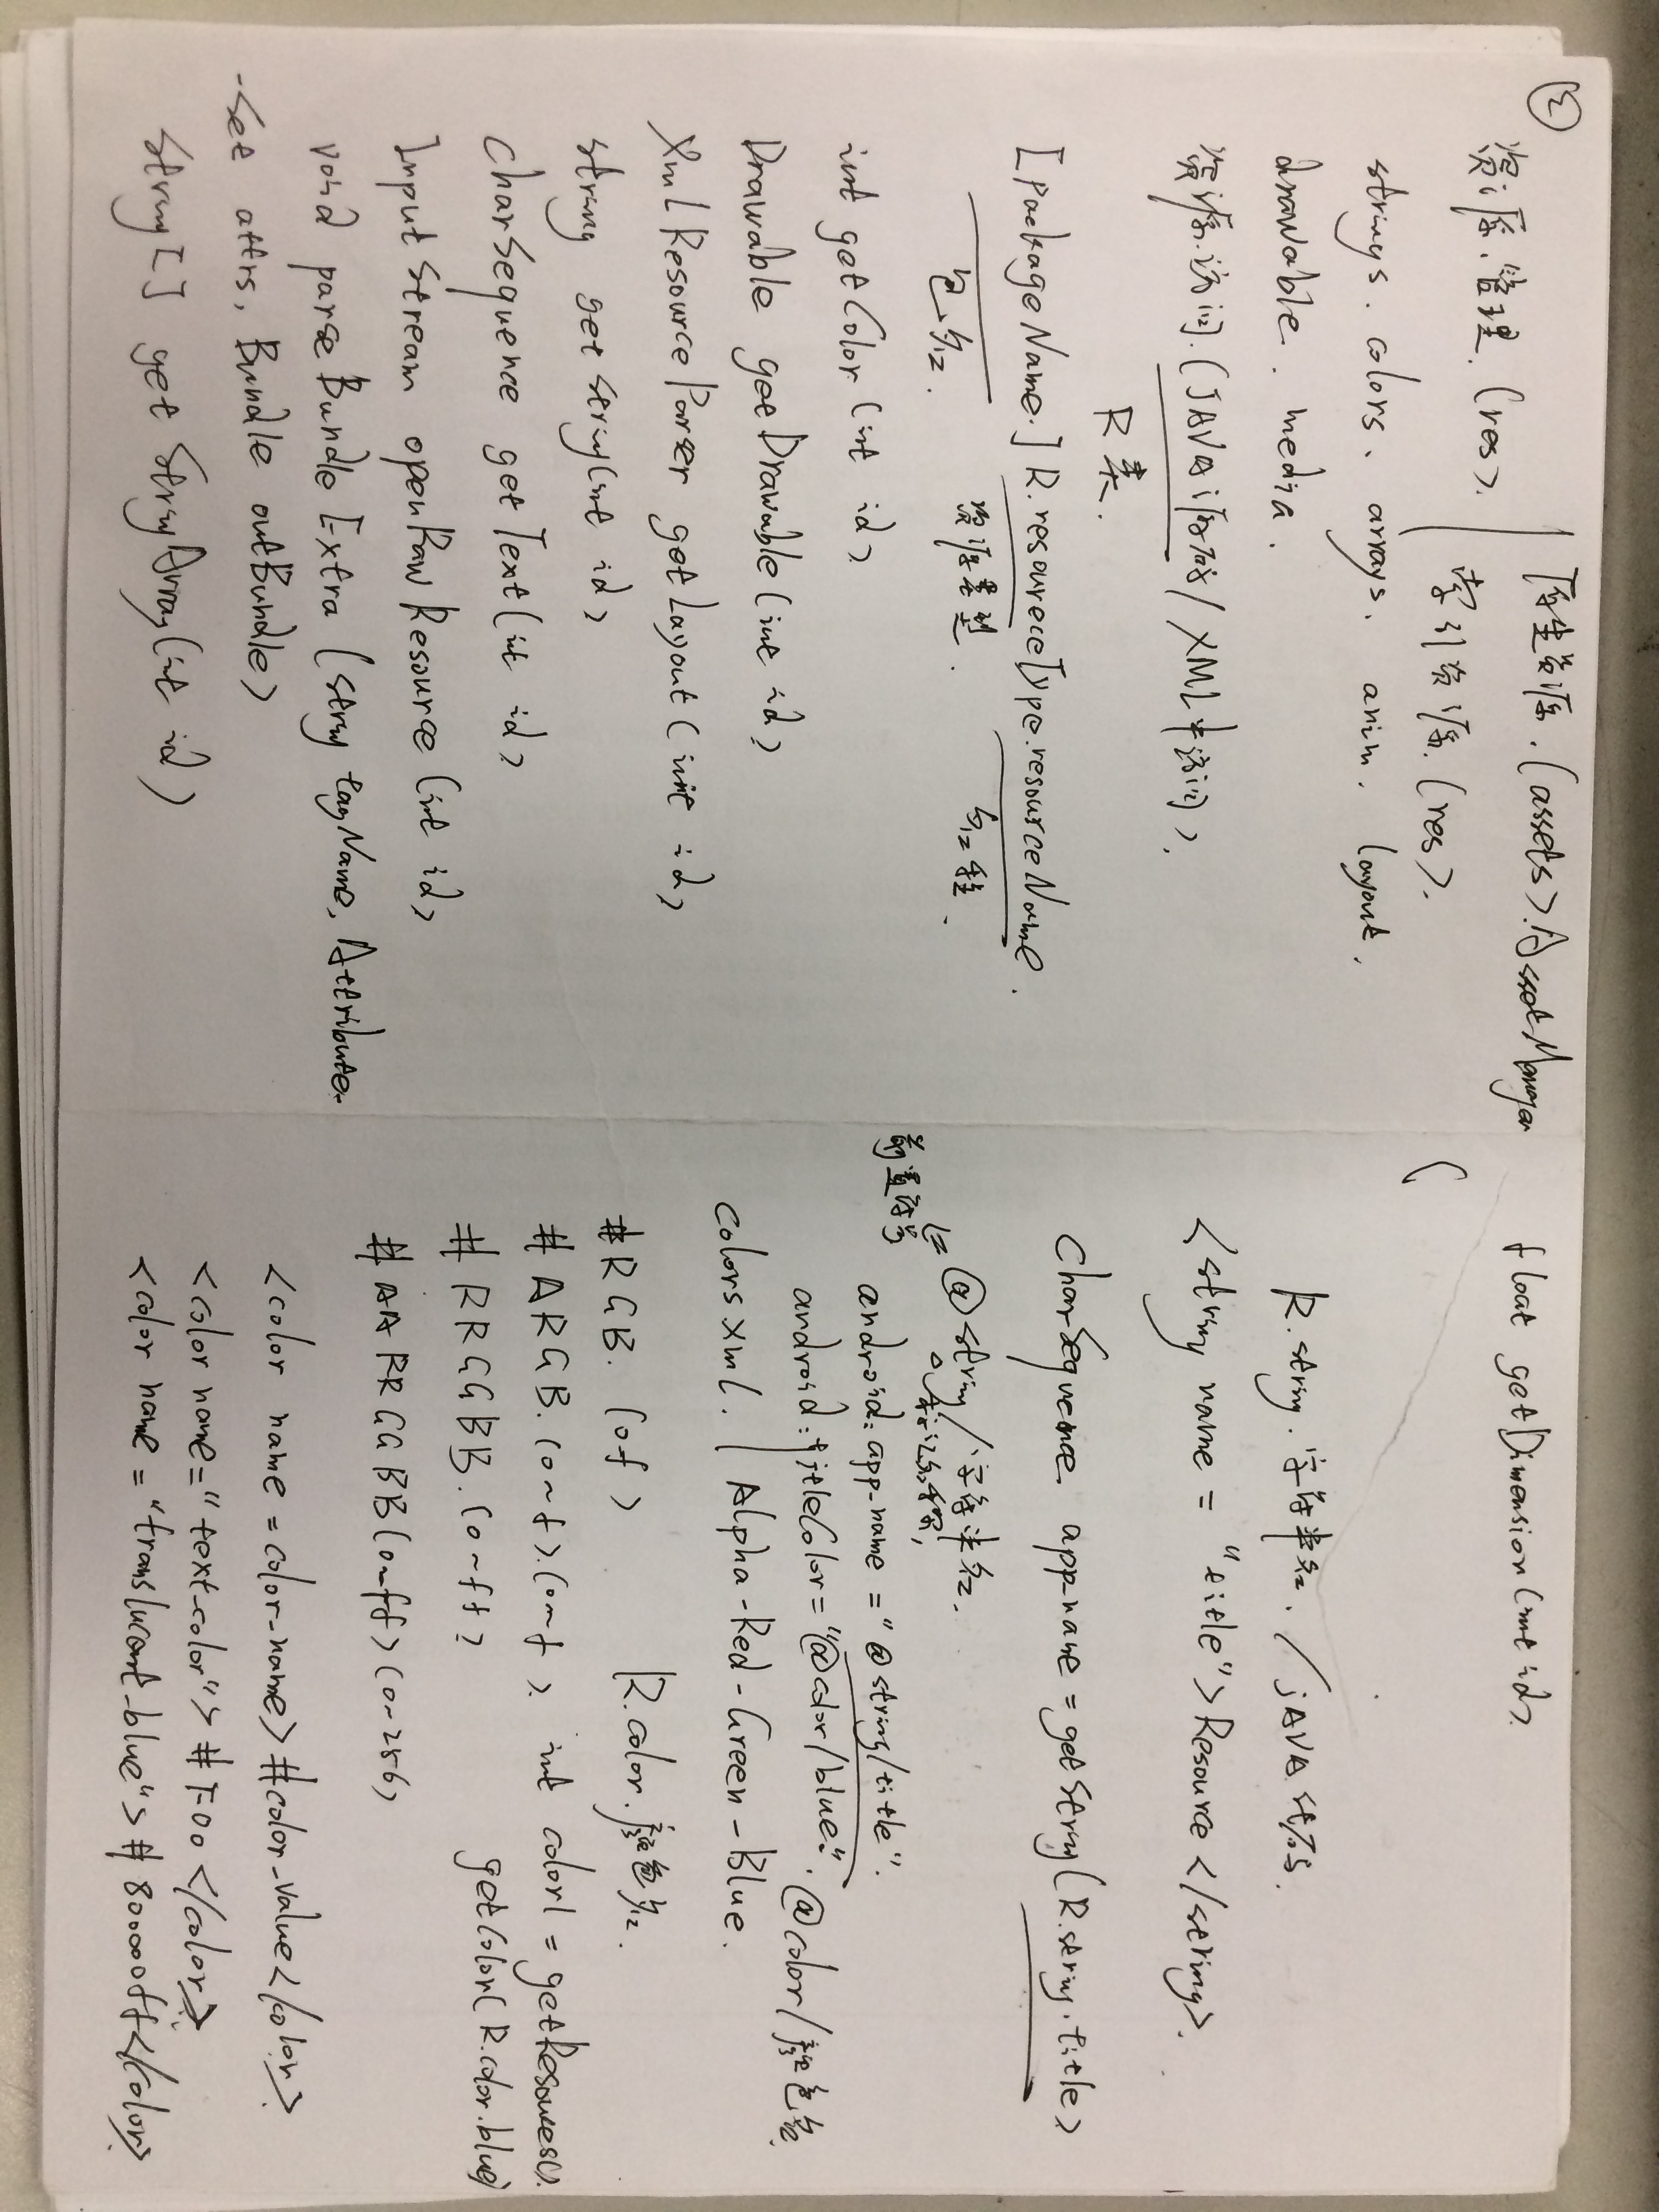 ②
资源管理.(res). | 原生资源.(assets).AssetManager
索引资源.(res).
strings. colors. arrays. anim. layout.
drawable. media.
资源访问.(JAVA代码/XML中访问).
R类.
[PackageName.]R.resoureceType.resourceName.
包名. 资源类型. 名称.
int getColor(int id)
Drawable getDrawable(int id)
XmlResourceParser getLayout(int id)
String getString(int id)
CharSequence getText(int id)
InputStream openRawResource(int id)
void parseBundleExtra(String tagName, Attribute-
-Set attrs, Bundle outBundle)
String[] getStringArray(int id)
float getDimension(int id).
(
R.string.字符串名. / JAVA代码.
<string name = "title">Resource</string>.
CharSequence app-name = getString(R.string.title)
@string/字符串名.
前置符号
android:app-name = "@string/title".
android:titleColor = "@color/blue". @color/颜色名.
colors xml. | Alpha-Red-Green-Blue.
#RGB. (0f) R.color.颜色名.
#ARGB.(0~f).(0~f). int color1 = getResources().
#RRGGBB.(0~ff) getColor(R.color.blue)
#AARRGGBB(0~ff)(0~256)
<color name=color-name>#color-value</color>
<color name="text-color">#F00</color>
<color name="translucent-blue">#800000ff</color>